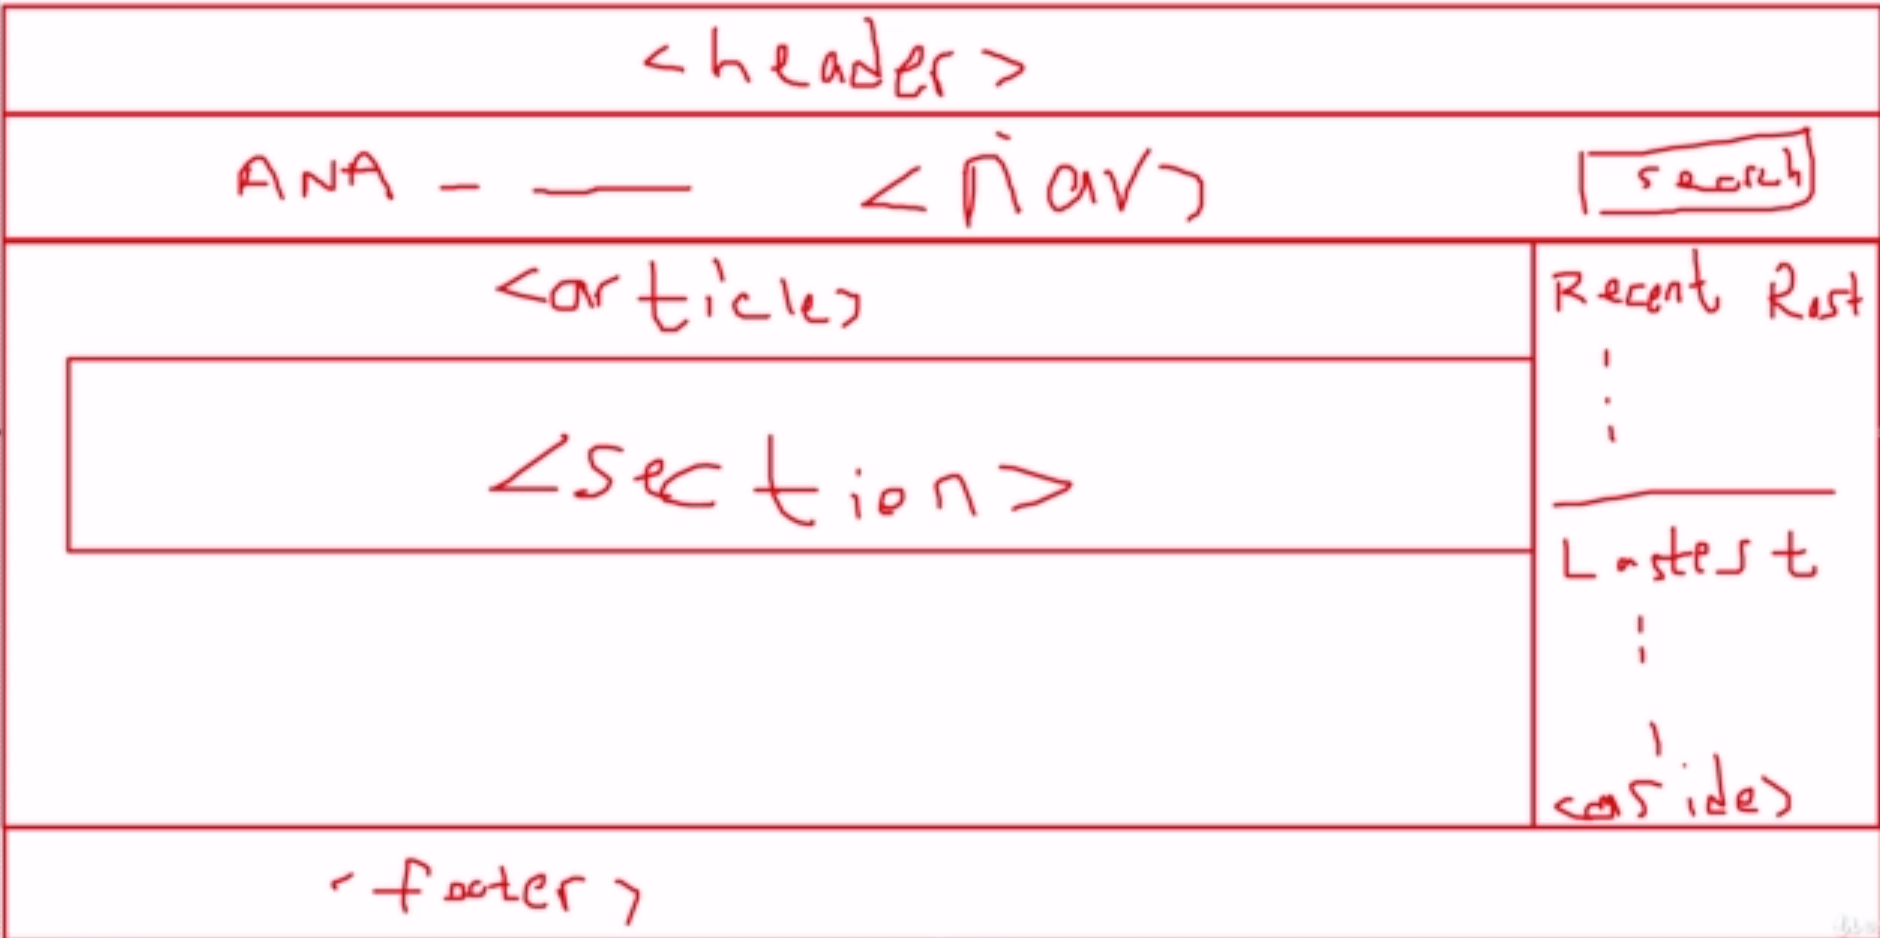 <header>
ANA - — <nav> search
<article>
Recent Post
<section>
Lastest
<aside>
<footer>